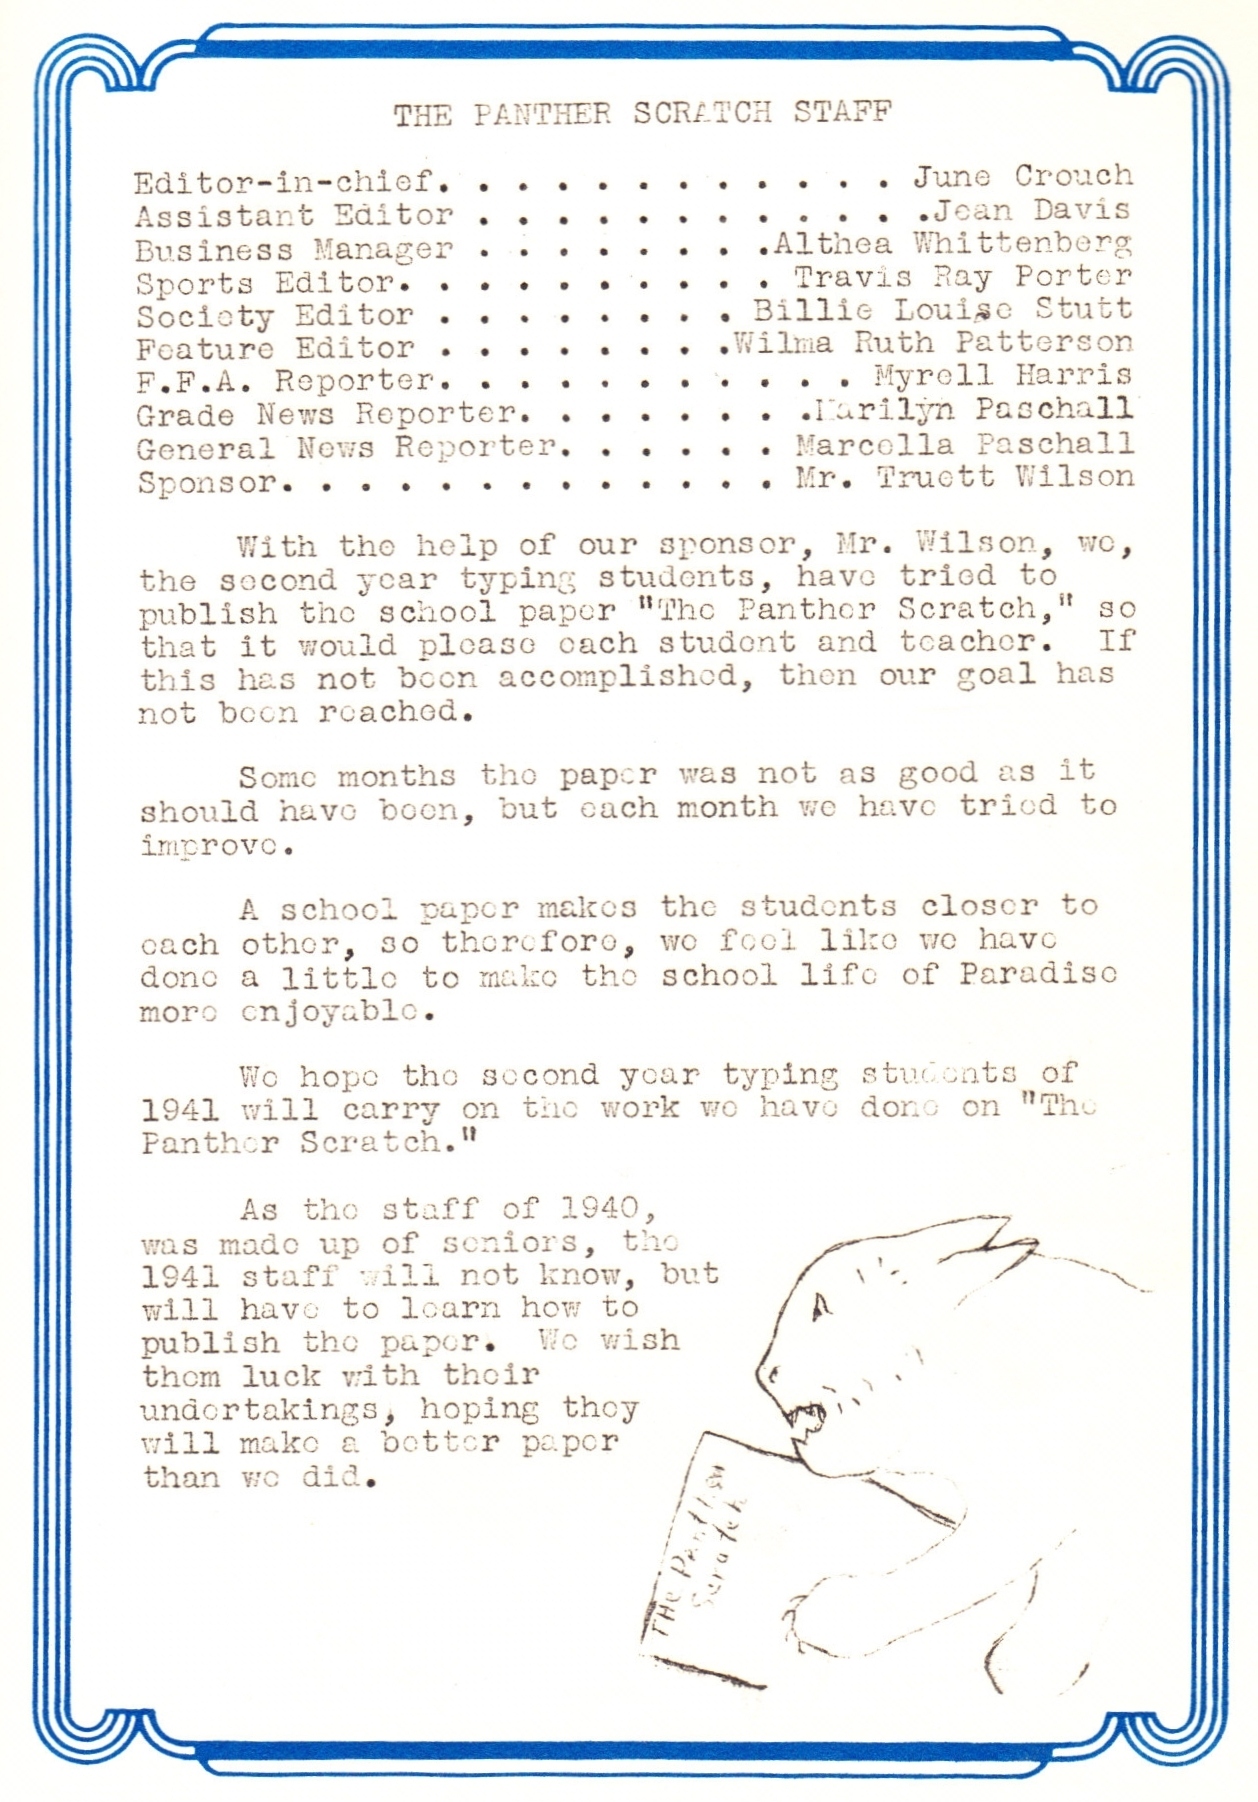 THE PANTHER SCRATCH STAFF
Editor-in-chief. . . . . . . . . . . . June Crouch
Assistant Editor . . . . . . . . . . . .Jean Davis
Business Manager . . . . . . . .Althea Whittenberg
Sports Editor. . . . . . . . . . Travis Ray Porter
Society Editor . . . . . . . . Billie Louise Stutt
Feature Editor . . . . . . . .Wilma Ruth Patterson
F.F.A. Reporter. . . . . . . . . . . Myrell Harris
Grade News Reporter. . . . . . . .Marilyn Paschall
General News Reporter. . . . . . Marcella Paschall
Sponsor. . . . . . . . . . . . . Mr. Truett Wilson
With the help of our sponsor, Mr. Wilson, we,
the second year typing students, have tried to
publish the school paper "The Panther Scratch," so
that it would please each student and teacher. If
this has not been accomplished, then our goal has
not been reached.
Some months the paper was not as good as it
should have been, but each month we have tried to
improve.
A school paper makes the students closer to
each other, so therefore, we feel like we have
done a little to make the school life of Paradise
more enjoyable.
We hope the second year typing students of
1941 will carry on the work we have done on "The
Panther Scratch."
As the staff of 1940,
was made up of seniors, the
1941 staff will not know, but
will have to learn how to
publish the paper. We wish
them luck with their
undertakings, hoping they
will make a better paper
than we did.
THe Panther
Scratch